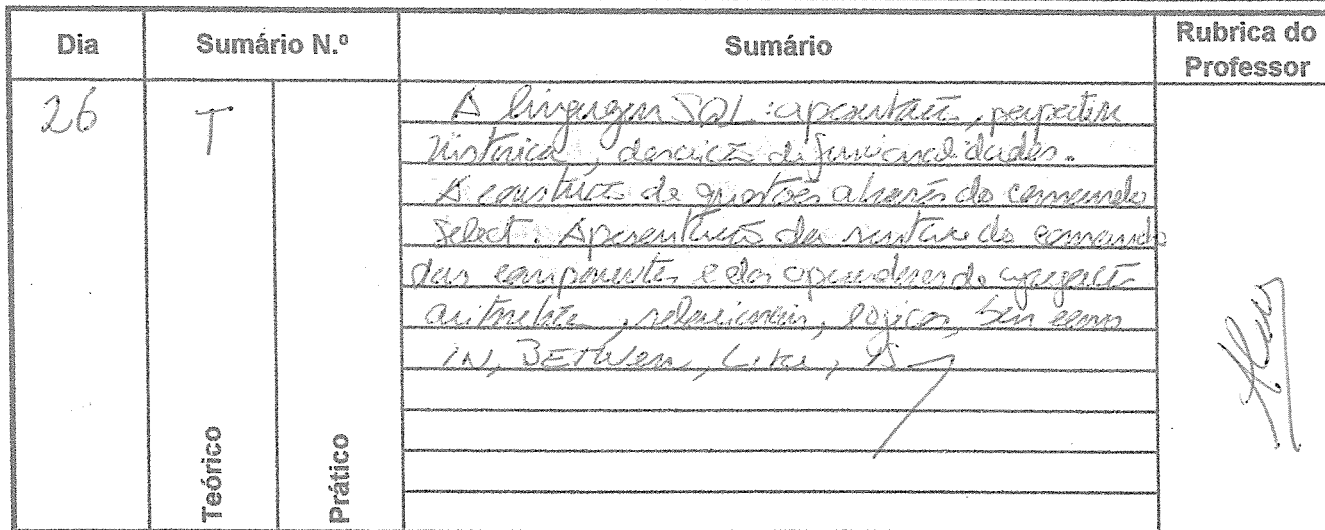 Dia Sumário N.º Sumário Rubrica do Professor
26 T
A linguagem SQL: apresentação, perspectiva
histórica, descrição de funcionalidades.
A construção de questões através do comando
Select. Apresentação da sintaxe do comando
das componentes e dos operadores de agregação
aritmética, relacionais, lógicos, bem como
IN, BETWEEN, Like, IS
Teórico
Prático